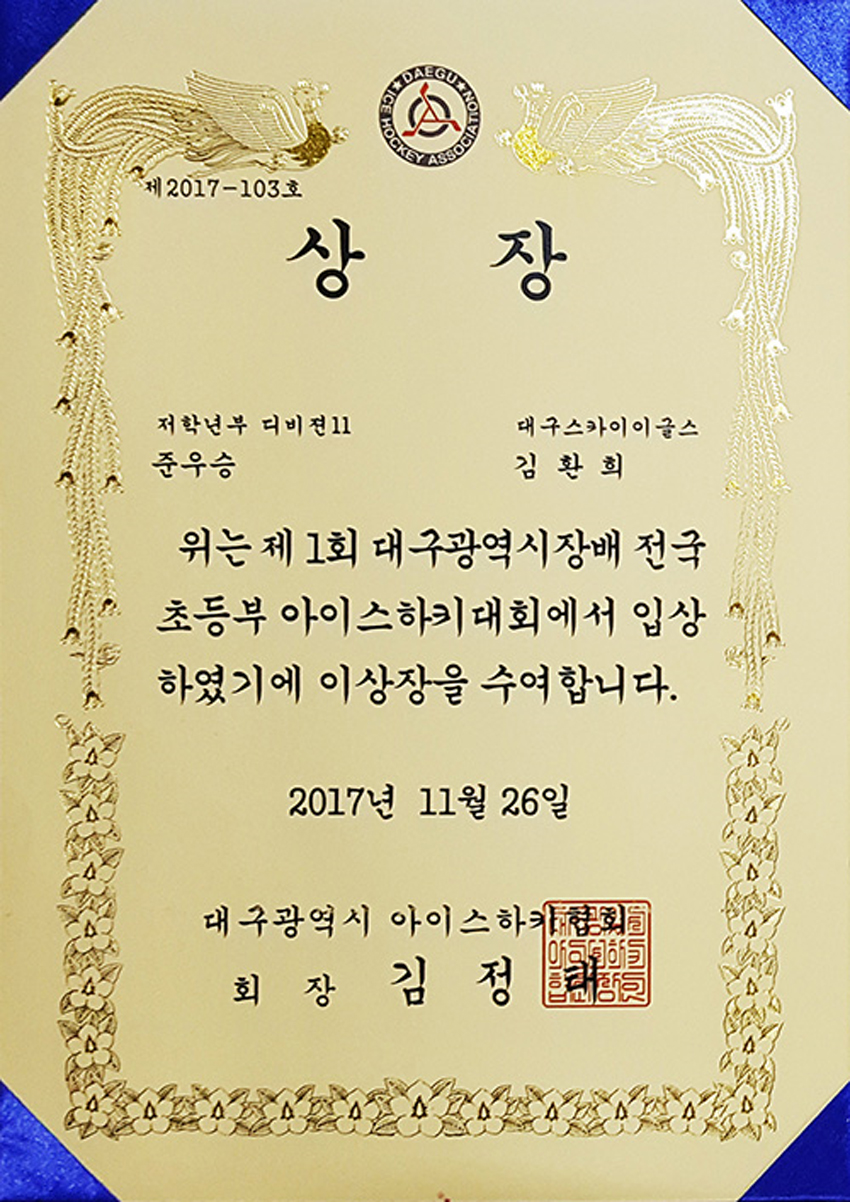 ★DAEGU★
ICE HOCKEY ASSOCIATION
제2017-103호
상 장
저학년부 디비젼11
대구스카이이글스
준우승
김 환 희
위는 제 1회 대구광역시장배 전국
초등부 아이스하키대회에서 입상
하였기에 이상장을 수여합니다.
2017년 11월 26일
대구광역시 아이스하키협회
회 장 김 정 태